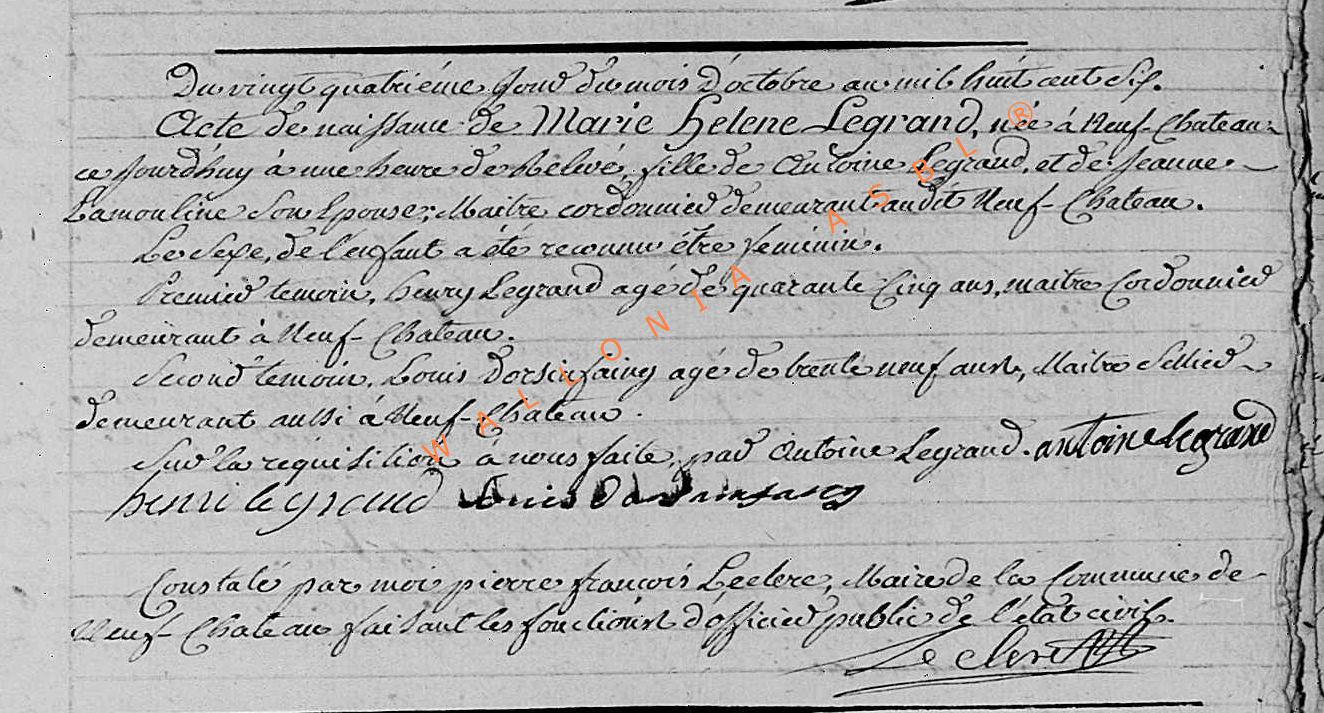 Du vingt quatriéme Jour du mois d'octobre an mil huit cent Six.
Acte de naissance de Marie Helene Legrand, née à Neuf-Chateau
ce Jourd'huy à une heure de Rélevé, fille de Antoine Legrand, et de Jeanne
Lamouline Son Epouse, Maitre cordonnier demeurant audit Neuf-Chateau.
Le Sexe, de l'enfant a été reconnu être feminin.
Premier temoin, henry Legrand agé de quarante Cinq ans, maitre Cordonnier
demeurant à Neuf-Chateau.
Second temoin, Louis Dorsinfaing agé de trente neuf ans, Maitre Sellier
demeurant aussi à Neuf-Chateau.
Sur la réquisition à nous faite, par Antoine Legrand. antoine legrand
henri legrand Louis
Constaté par moi pierre françois Leclere, Maire de la Commune de
Neuf-Chateau faisant les fonctions d'officier public de l'état civil.
Leclere
WALLONIA ASBL ®